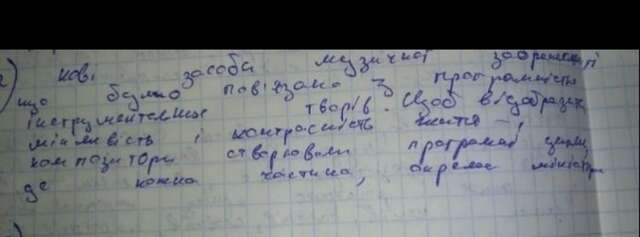 нові засоби музичної
що було пов'язано з програмністю
інструментальних творів. Щоб відобразити
мінливість і контрасність життя –,
композитори створювали програмні цикли,
де кожна частина, окрема мініатюра